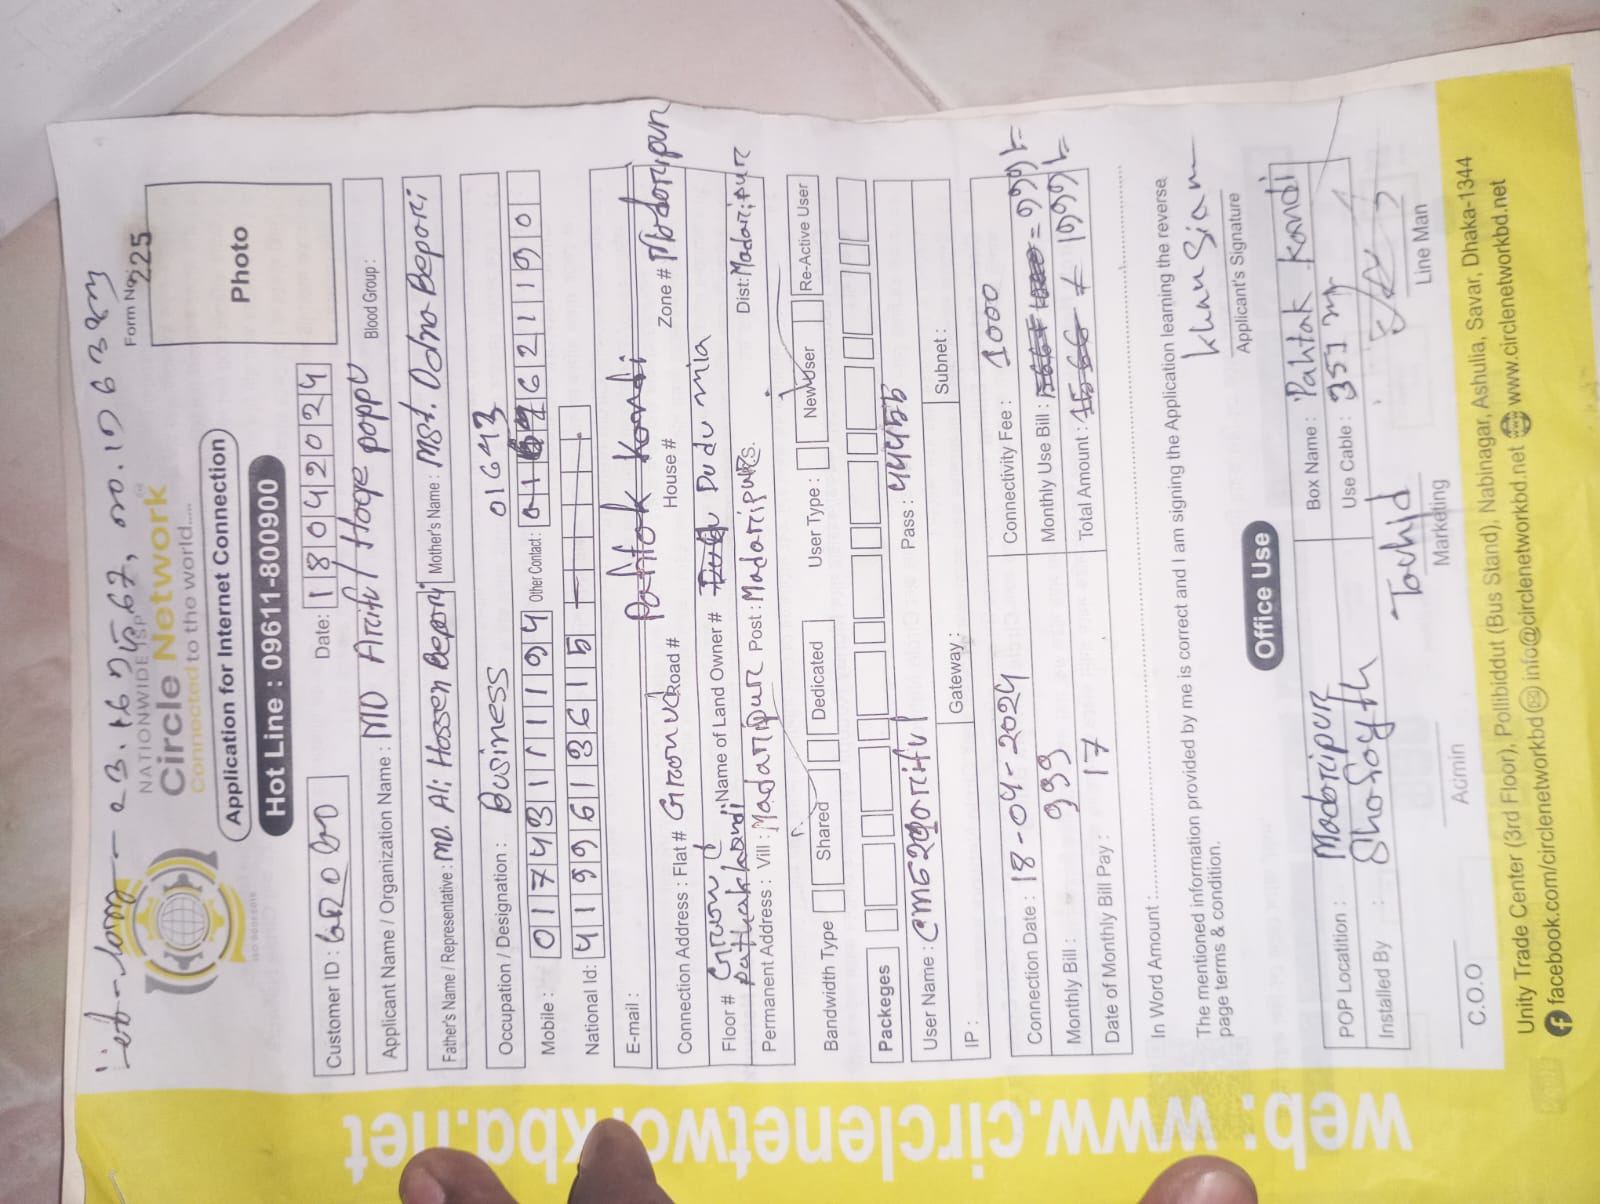 Form No: 225
NATIONWIDE ISP
Circle Network
Connected to the world.....
Application for Internet Connection
Hot Line : 09611-800900
Photo
Customer ID :
Date: 18042024
Applicant Name / Organization Name : MD Ariful Hoqe poppu
Blood Group :
Father's Name / Representative : MD. Ali Hossen Bepari
Mother's Name : Mst. Odna Bepari
Occupation / Designation : Business
01643
Mobile : 01743111194
Other Contact : 621190
National Id: 4199613615
E-mail :
Connection Address : Flat # Ground Road # House # Zone #
Floor # Ground Name of Land Owner # Dudu mila
pathakkandi
Permanent Address : Vill : Madaripur Post : Madaripur P.S. Dist: Madaripur
Bandwidth Type Shared Dedicated User Type : New User Re-Active User
Packeges
User Name : Pass : 44455
IP : Gateway : Subnet :
Connection Date : 18-04-2024
Connectivity Fee : 1000
Monthly Bill : 999
Monthly Use Bill : = 999/-
Date of Monthly Bill Pay : 17
Total Amount : 1999/-
In Word Amount :
The mentioned information provided by me is correct and I am signing the Application learning the reverse
page terms & condition.
Khan Siam
Applicant's Signature
Office Use
POP Locatition : Madaripur
Box Name : Pahtak Kandi
Installed By :
Use Cable : 351 m
Towhid
C.O.O Admin Marketing Line Man
Unity Trade Center (3rd Floor), Pollibiddut (Bus Stand), Nabinagar, Ashulia, Savar, Dhaka-1344
facebook.com/circlenetworkbd info@circlenetworkbd.net www.circlenetworkbd.net
web: www.circlenetworkbd.net